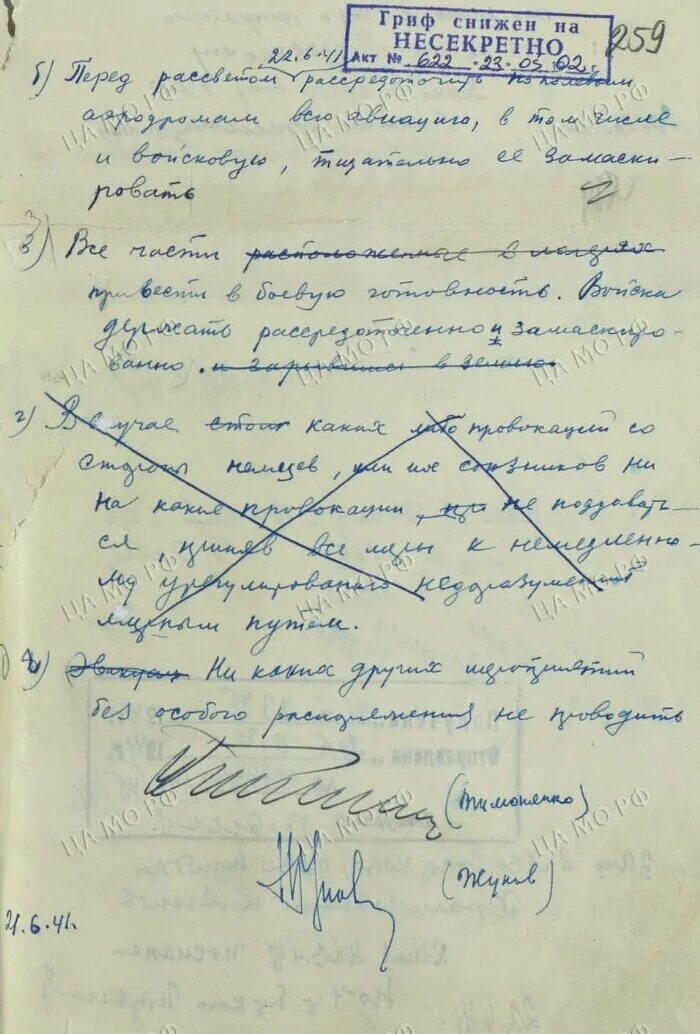 Гриф снижен на
НЕСЕКРЕТНО
Акт № 622 23.05.02 г.
259
22.6.41
б) Перед рассветом рассредоточить по полевым
аэродромам всю авиацию, в том числе
и войсковую, тщательно ее замаски-
ровать
в) Все части расположенные в лагерях
привести в боевую готовность. Войска
держать рассредоточенно и замаскиро-
ванно. и зарывшись в землю.
г) В случае каких либо провокаций со
стороны немцев, или их союзников ни
на какие провокации, не поддавать-
ся, приняв все меры к немедленно-
му урегулированию недоразумений
мирным путем.
Ни каких других мероприятий
без особого распоряжения не проводить
(Тимошенко)
(Жуков)
21.6.41.
ЦА МО РФ